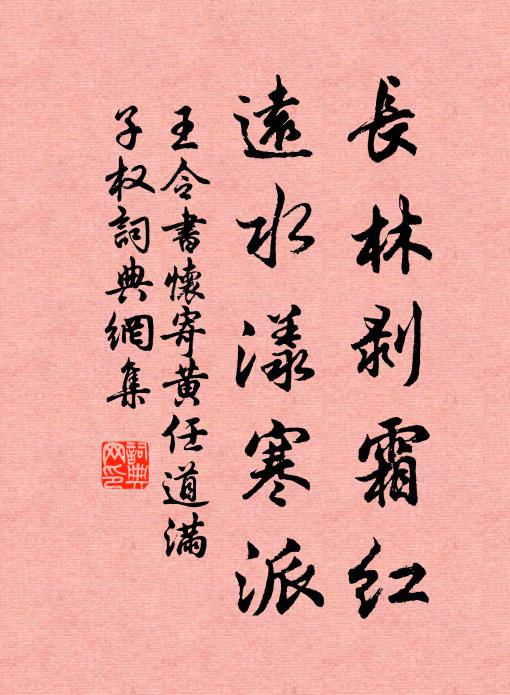 長林剥霜紅
遠水漾寒派
王令書懷寄黄任道滿
子权詞典網集
詞典网印